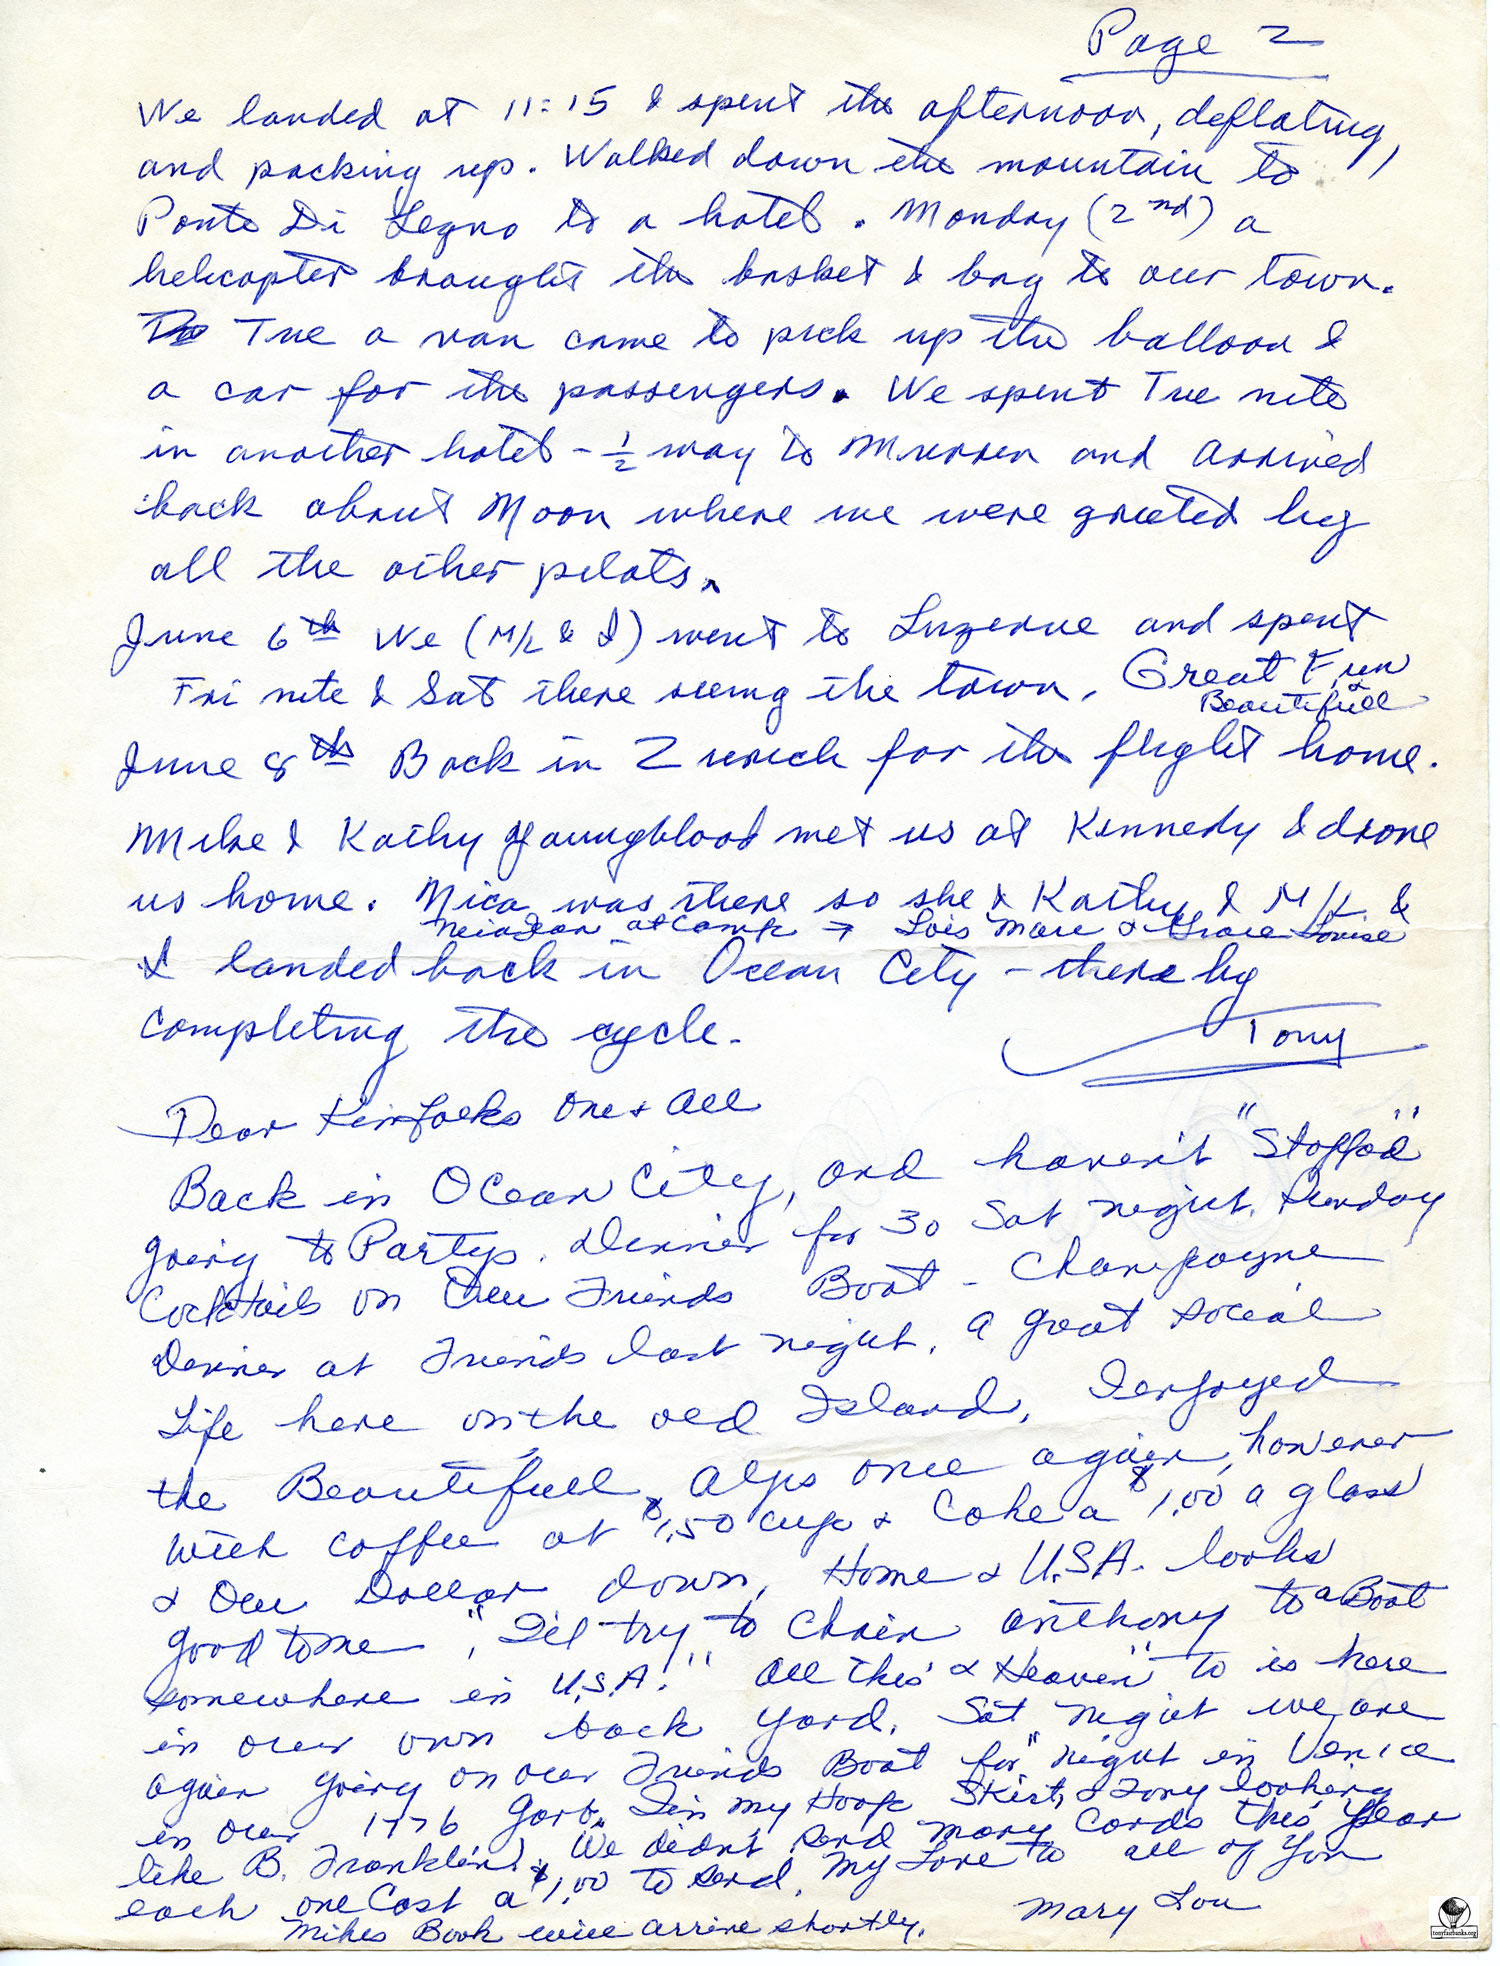 Page 2
We landed at 11:15 & spent the afternoon, deflating,
and packing up. Walked down the mountain to
Ponte Di Legno to a hotel. Monday (2nd) a
helicopter brought the basket & bag to our town.
Tue a van came to pick up the balloon &
a car for the passengers. We spent Tue nite
in another hotel - ½ way to Murren and arrived
back about Moon where we were greeted by
all the other pilots.
June 6th We (M/L & I) went to Luzerne and spent
Fri nite & Sat there seeing the town. Great Fun
& Beautifull
June 8th Back in Zurich for the flight home.
Mike & Kathy Youngblood met us at Kennedy & drove
us home. Nica was there so she & Kathy & M/L &
at Camp → Lois Marc & Grace Louise
I landed back in Ocean City - there by
completing the cycle.
Tony
Dear Kinfolks One & All
Back in Ocean City, and haven't "Stopped"
going to Partys. Dinner for 30 Sat night. Sunday
Cocktails on Our Friends Boat - Champagne
Dinner at Friends last night. A great social
Life here on the old Island. I enjoyed
the Beautifull Alps once again, however
with coffee at $1.50 cup & Coke a $1.00 a glass
& Our Dollar down, Home & U.S.A. looks
good to me, "I'll try to chain Anthony to a Boat
somewhere in U.S.A." "All this & Heaven" to is here
in our own back yard. Sat night we are
again going on our Friends Boat for "night in Venice
in our 1776 Garb. I'm my Hoop Skirt, & Tony looking
like B. Franklin! We didn't send many cards this year
each one Cost a $1.00 to send. My Love to all of You
Mary Lou
Mikes Book will arrive shortly.
tonyfairbanks.org